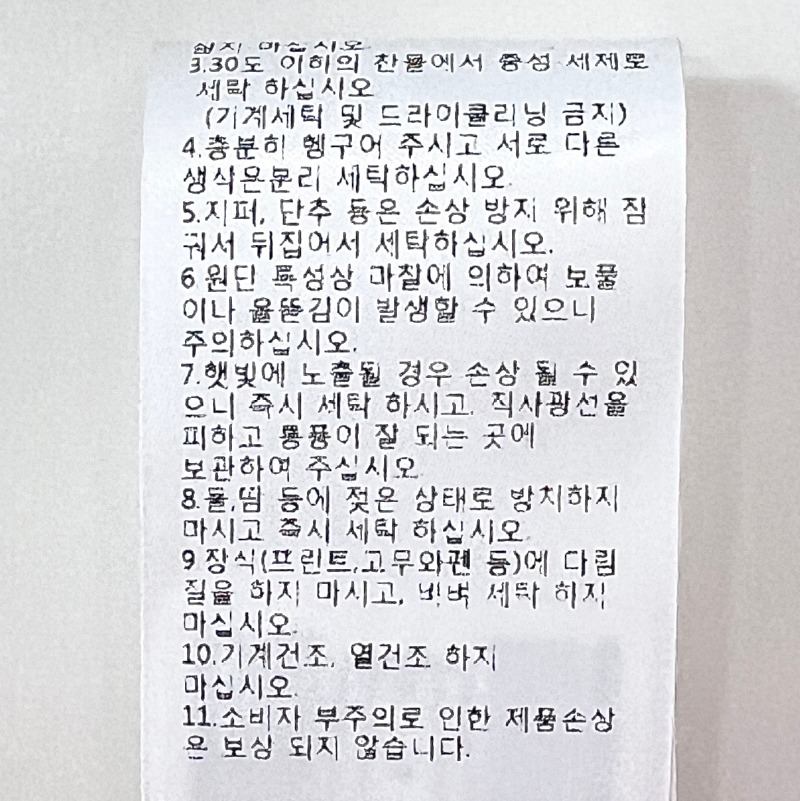 마십시오
3.30도 이하의 찬물에서 중성 세제로
세탁 하십시오
(기계세탁 및 드라이클리닝 금지)
4.충분히 헹구어 주시고 서로 다른
생식은분리 세탁하십시오.
5.지퍼, 단추 등은 손상 방지 위해 잠
궈서 뒤집어서 세탁하십시오.
6.원단 특성상 마찰에 의하여 보풀
이나 올뜯김이 발생할 수 있으니
주의하십시오.
7.햇빛에 노출될 경우 손상 될 수 있
으니 즉시 세탁 하시고, 직사광선을
피하고 통풍이 잘 되는 곳에
보관하여 주십시오
8.물,땀 등에 젖은 상태로 방치하지
마시고 즉시 세탁 하십시오.
9.장식(프린트,고무와펜 등)에 다림
질을 하지 마시고, 비벼 세탁 하지
마십시오.
10.기계건조, 열건조 하지
마십시오.
11.소비자 부주의로 인한 제품손상
은 보상 되지 않습니다.